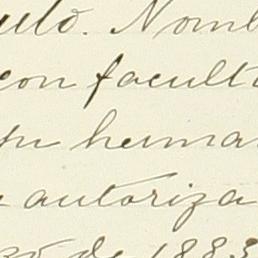 uto. Nomb
con facult
su herma
autoriza
25 de 1883